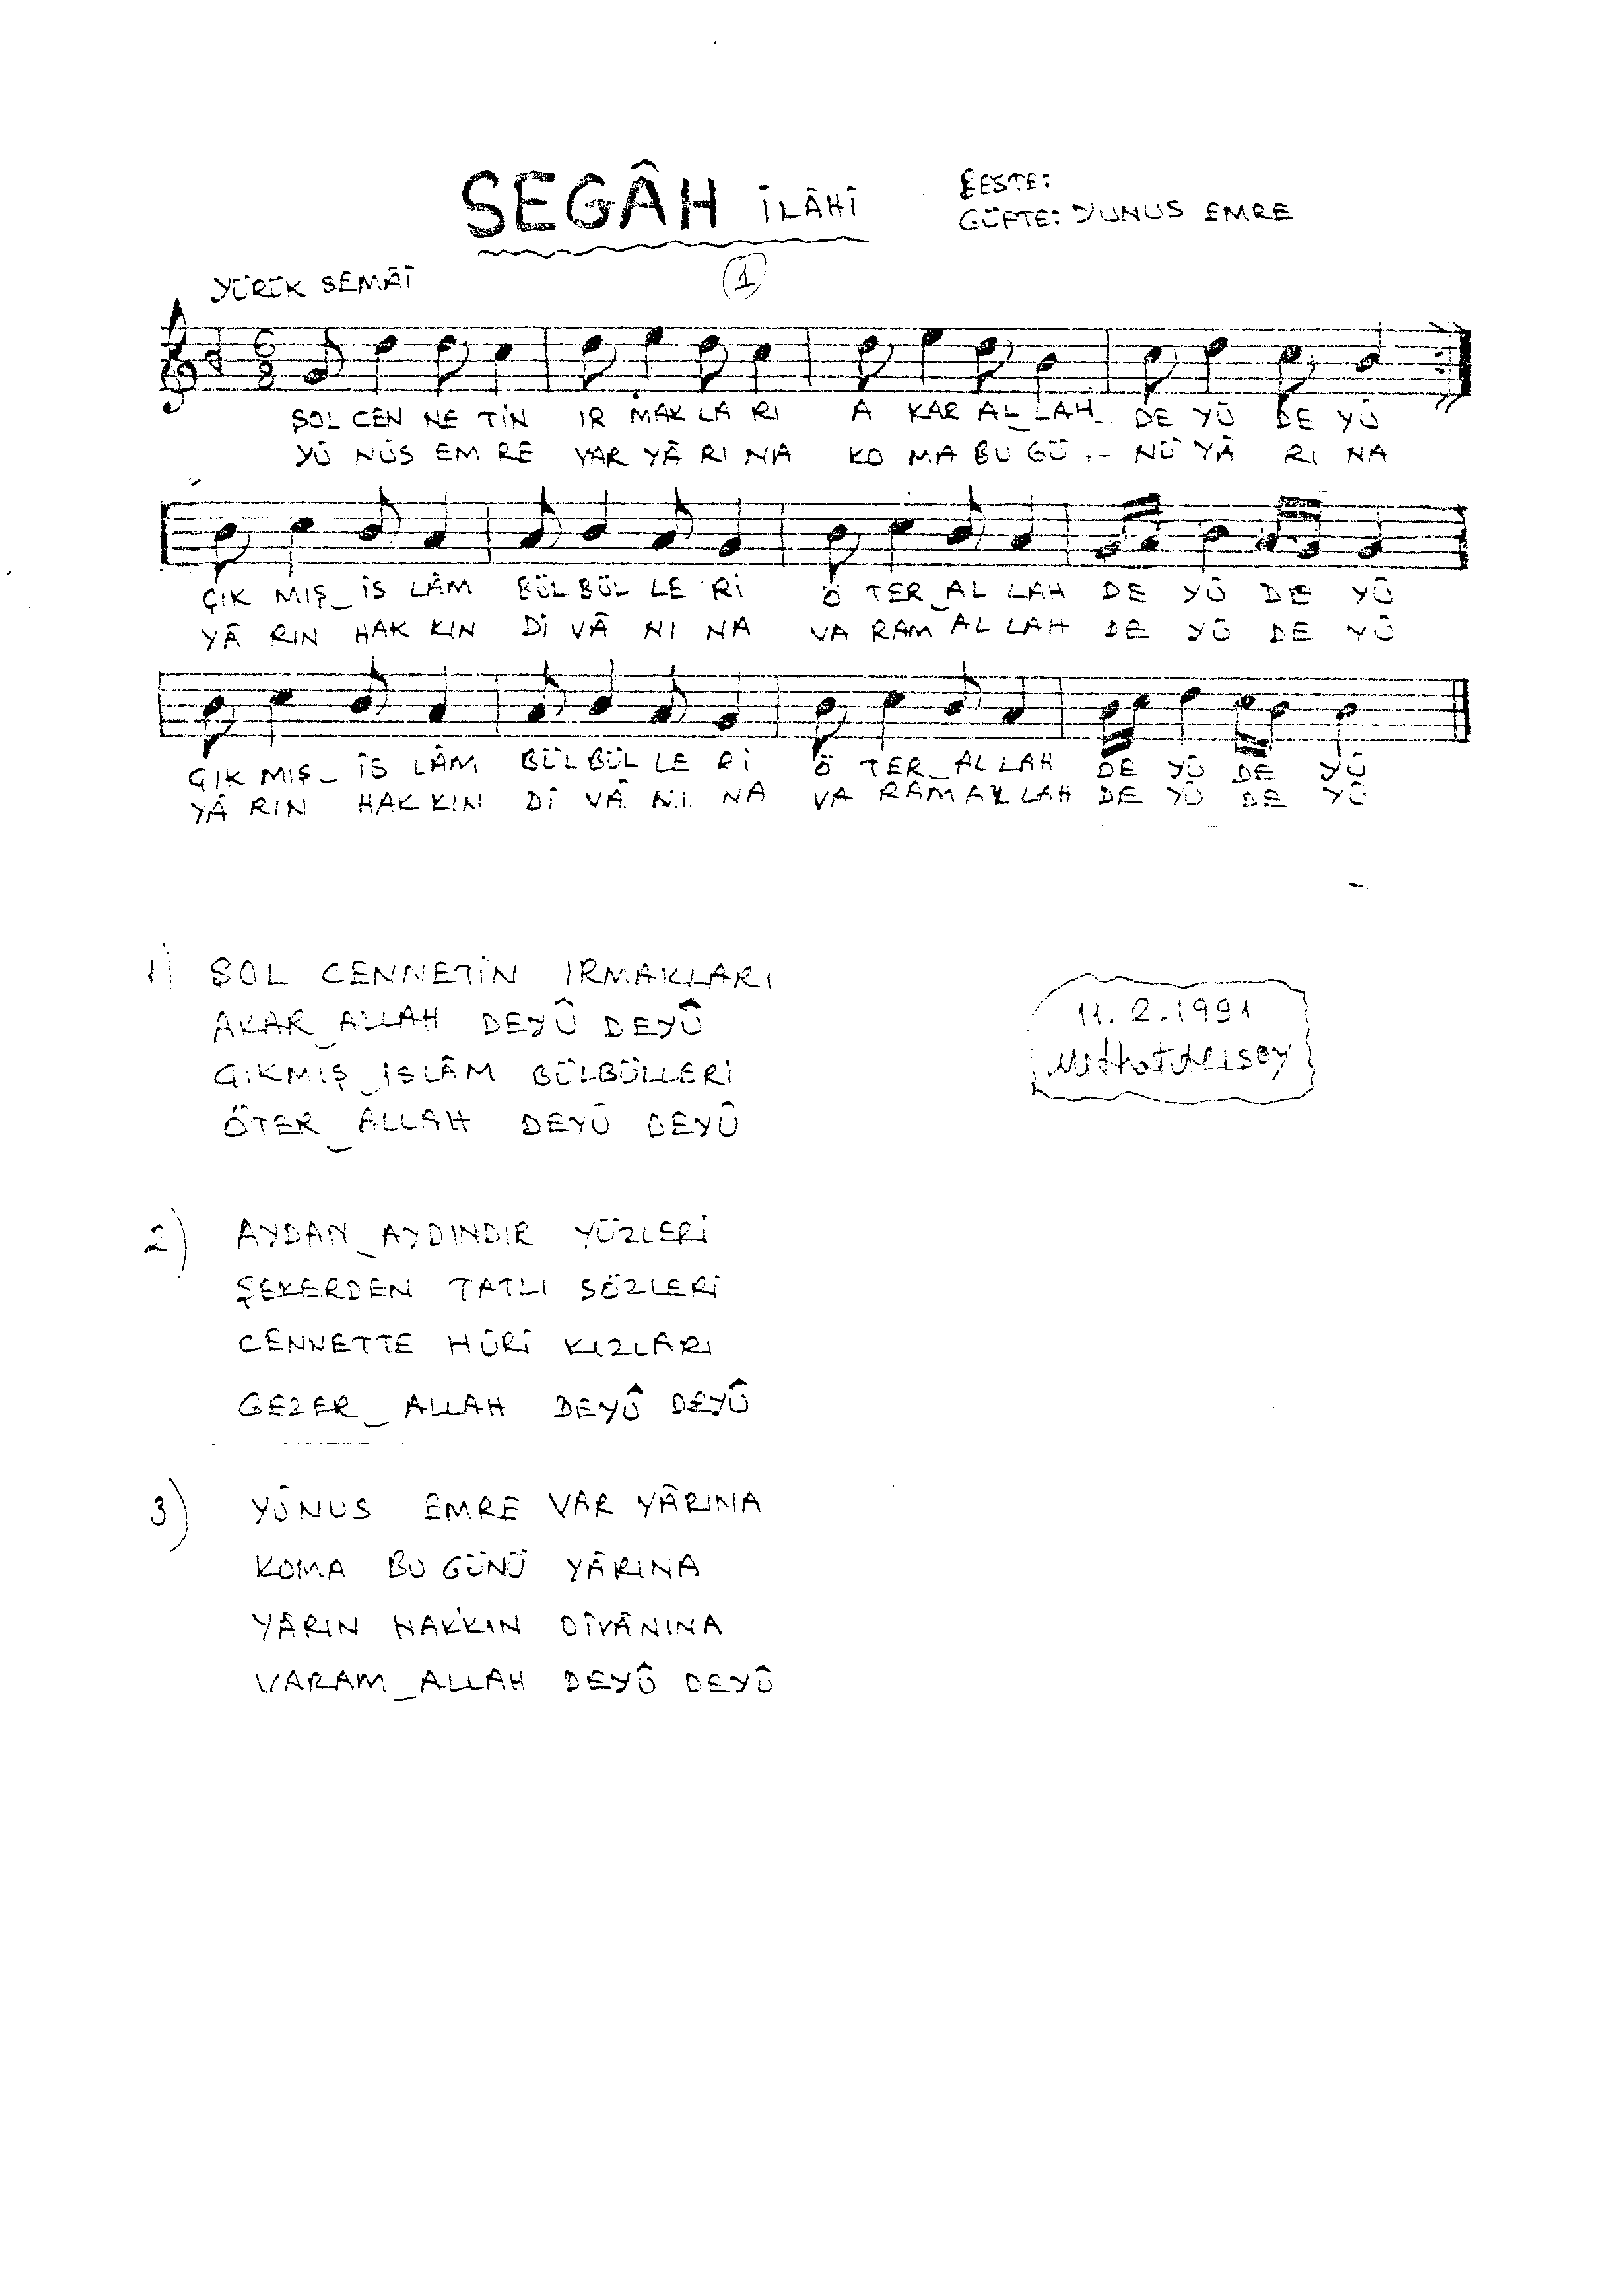 SEGÂH İLÂHÎ
BESTE:
GÜFTE: YUNUS EMRE
YÜRÜK SEMÂÎ
1
6
8
ŞOL CEN NE TİN IR MAK LA RI A KAR AL_LAH DE YÛ DE YÛ
YÛ NÜS EM RE VAR YÂ RI NA KO MA BU GÜ - NÜ YÂ RI NA
ÇIK MIŞ_İS LÂM BÜL BÜL LE Rİ Ö TER_AL LAH DE YÛ DE YÛ
YÂ RIN HAK KIN Dİ VÂ NI NA VA RAM AL LAH DE YÛ DE YÛ
ÇIK MIŞ_İS LÂM BÜL BÜL LE Rİ Ö TER_AL LAH DE YÛ DE YÛ
YÂ RIN HAK KIN DÎ VÂ NI NA VA RAM AL LAH DE YÛ DE YÛ
1) ŞOL CENNETİN IRMAKLARI
AKAR_ALLAH DEYÛ DEYÛ
ÇIKMIŞ_İSLÂM BÜLBÜLLERİ
ÖTER_ALLAH DEYÛ DEYÛ
11.2.1991
2) AYDAN_AYDINDIR YÜZLERİ
ŞEKERDEN TATLI SÖZLERİ
CENNETTE HÛRÎ KIZLARI
GEZER_ALLAH DEYÛ DEYÛ
3) YÛNUS EMRE VAR YÂRINA
KOMA BU GÜNÜ YÂRINA
YÂRIN HAKKIN DÎVÂNINA
VARAM_ALLAH DEYÛ DEYÛ